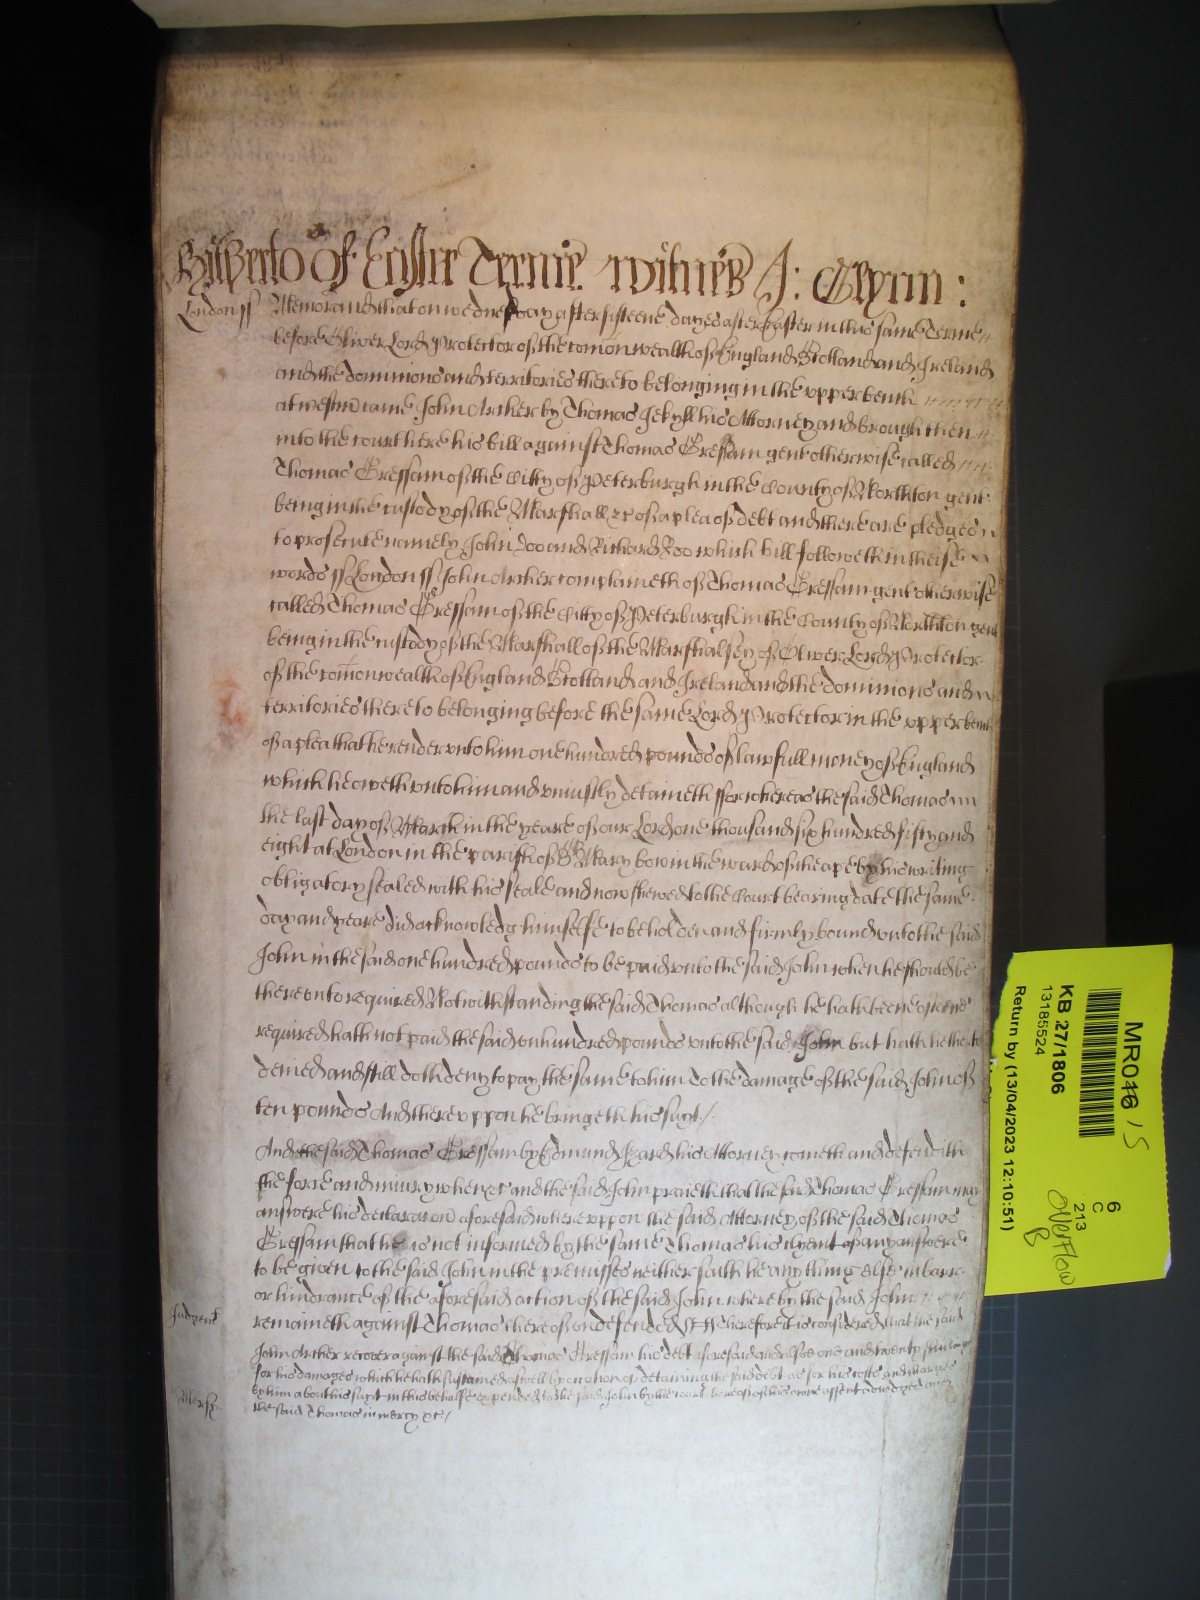 Hitherto of Easter Terme witnes J: Glynn :
London ss Memorand that on wednesday after fifteene dayes after Easter in this same Terme
before Oliver Lord Protector of the comonwealth of England Scotland and Ireland
and the dominions and territories thereto belonging in the upper bench
at westm came John Archer by Thomas Jekyll his Attorney and brought then
into the court here his bill against Thomas Cressam gent otherwise called
Thomas Cressam of the Citty of Peterburgh in the County of Northton gent
being in the custody of the Marshall &c of a plea of debt and there are pledges
to prosecute namely John Doo and Richard Roo which bill followeth in theise
words ss London ss John Archer complaineth of Thomas Cressam gent otherwise
called Thomas Cressam of the Citty of Peterburgh in the County of Northton gent
being in the custody of the Marshall of the Marshalsey of Oliver Lord Protector
of the comonwealth of England Scotland and Ireland and the dominions and
territories thereto belonging before the same Lord Protector in the upper bench
of a plea that he render unto him one hundred pounds of lawfull money of England
which he oweth unto him and uniustly detaineth ffor whereas the said Thomas
the last day of March in the yeare of our Lord one thousand six hundred fifty and
eight at London in the parish of St Mary bow in the ward of cheape by his writing
obligatory sealed with his seale and now shewed to the Court bearing date the same
day and yeare did acknowledg himselfe to be holden and firmly bound unto the said
John in the said one hundred pounds to be paid unto the said John when he should be
thereunto required Notwithstanding the said Thomas although he hath beene oftene
required hath not paid the said on hundred pounds unto the said John but hath hitherto
denied and still doth deny to pay the same to him To the damage of the said John of
ten pounds And thereuppon he bringeth his suyt /.
And the said Thomas Cressam by Edmund Izard his Attorney cometh and defendith
the force and iniury when &c and the said John praieth that the said Thomas Cressam may
answere his declaracon aforesaid whereuppon the said Attorney of the said Thomas
Cressam that he is not informed by the same Thomas his clyent of any answere
to be given to the said John in the premisses neither saith he any thing else in barr
or hindrance of the aforesaid action of the said John whereby the said John
remaineth against Thomas thereof undefended &c Therefore it is considered that the said
Judgent
John Archer recover against the said Thomas Cressam his debt aforesaid and alsoe one and twenty shillings
for his damages which he hath sustained aswell by occation of detaining the said debt as for his costs and charges
by him about his suyt in this behalfe expended to the said John by the court hereof of his owne assent adiudged And
Mercy
the said Thomas in mercy &c /
MR046 15
6
C
213
overflow
B
KB 27/1806
13185524
Return by (13/04/2023 12:10:51)